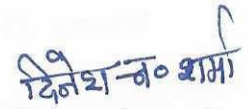 दिनेश च० शर्मा